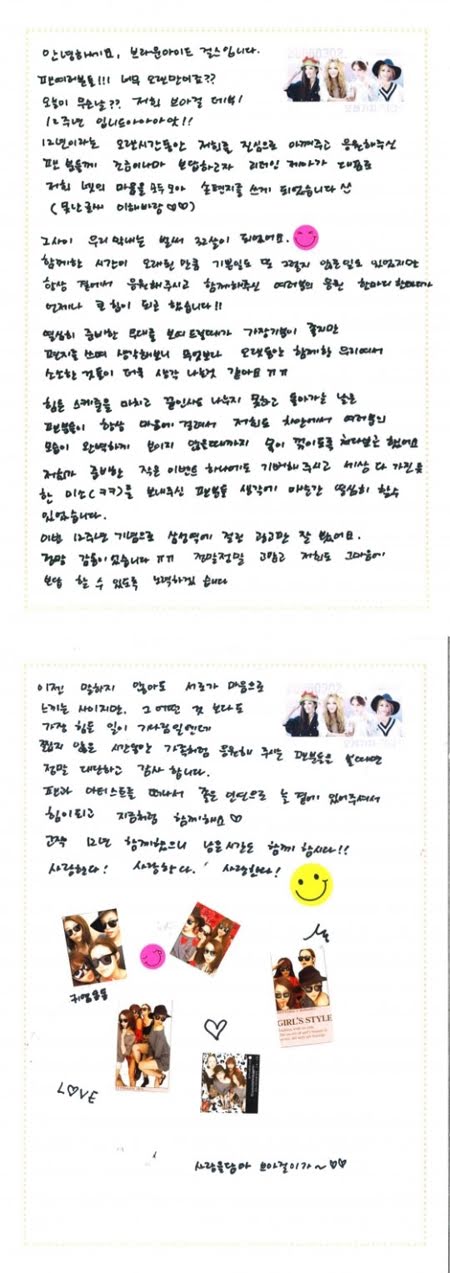 안녕하세요, 브라운아이드 걸스입니다.
팬여러분들!!! 너무 오랜만이죠??
오늘이 무슨날?? 저희 브아걸 데뷔!
12주년 입니드아아아앗!!
12년이라는 오랜시간동안 저희를 진심으로 아껴주고 응원해주신
팬 분들께 조금이나마 보답하고자 리더인 제아가 대표로
저희 넷의 마음을 모두모아 손편지를 쓰게 되었습니다
(못난글씨 이해바람♡♡)
그사이 우리 막내는 벌써 32살이 되었어요.
함께한 시간이 오래된 만큼 기쁜일도 또 그렇지 않은일도 있었지만
항상 곁에서 응원해주시고 함께해주신 여러분의 응원 한마디 한마디가
언제나 큰 힘이 되곤 했습니다!!
열심히 준비한 무대를 보여드릴때가 가장기쁨이 좋지만
편지를 쓰며 생각해보니 무엇보다 오랜동안 함께한 우리여서
소소한 것들이 더욱 생각 나는것 같아요 ㅠㅠ
힘든 스케줄을 마치고 끝인사도 나누지 못하고 돌아가는 날은
팬분들이 항상 마음에 걸려서 저희도 차안에서 여러분의
모습이 완벽하게 보이지 않을때까지 목이 꺾이도록 쳐다보곤 했어요
저희가 준비한 작은 이벤트 하나에도 기뻐해 주시고 세상 다 가진듯
한 미소(ㅋㅋ)를 보내주신 팬분들 생각에 매순간 열심히 할수
있었습니다.
이번 12주년 기념으로 삼성역에 걸린 광고판 잘 봤어요.
정말 감동이었습니다 ㅠㅠ 정말정말 고맙고 저희도 그마음에
보답 할 수 있도록 노력하겠습니다
이젠 말하지 않아도 서로가 마음으로
느끼는 사이지만, 그 어떤 것 보다도
가장 힘든 일이 기다림일텐데
짧지 않은 시간동안 가족처럼 응원해 주시는 팬분들을 보자면
정말 대단하고 감사 합니다.
팬과 아티스트를 떠나서 좋은 인연으로 늘 곁에 있어주셔서
힘이되고 지금처럼 함께해요♡
고작 12년 함께했으니 남은시간도 함께 합시다!!
사랑한다! 사랑한다! 사랑한다!
귀염둥둥
GIRL'S STYLE
L♡VE
사랑을담아 브아걸이가~♡♡